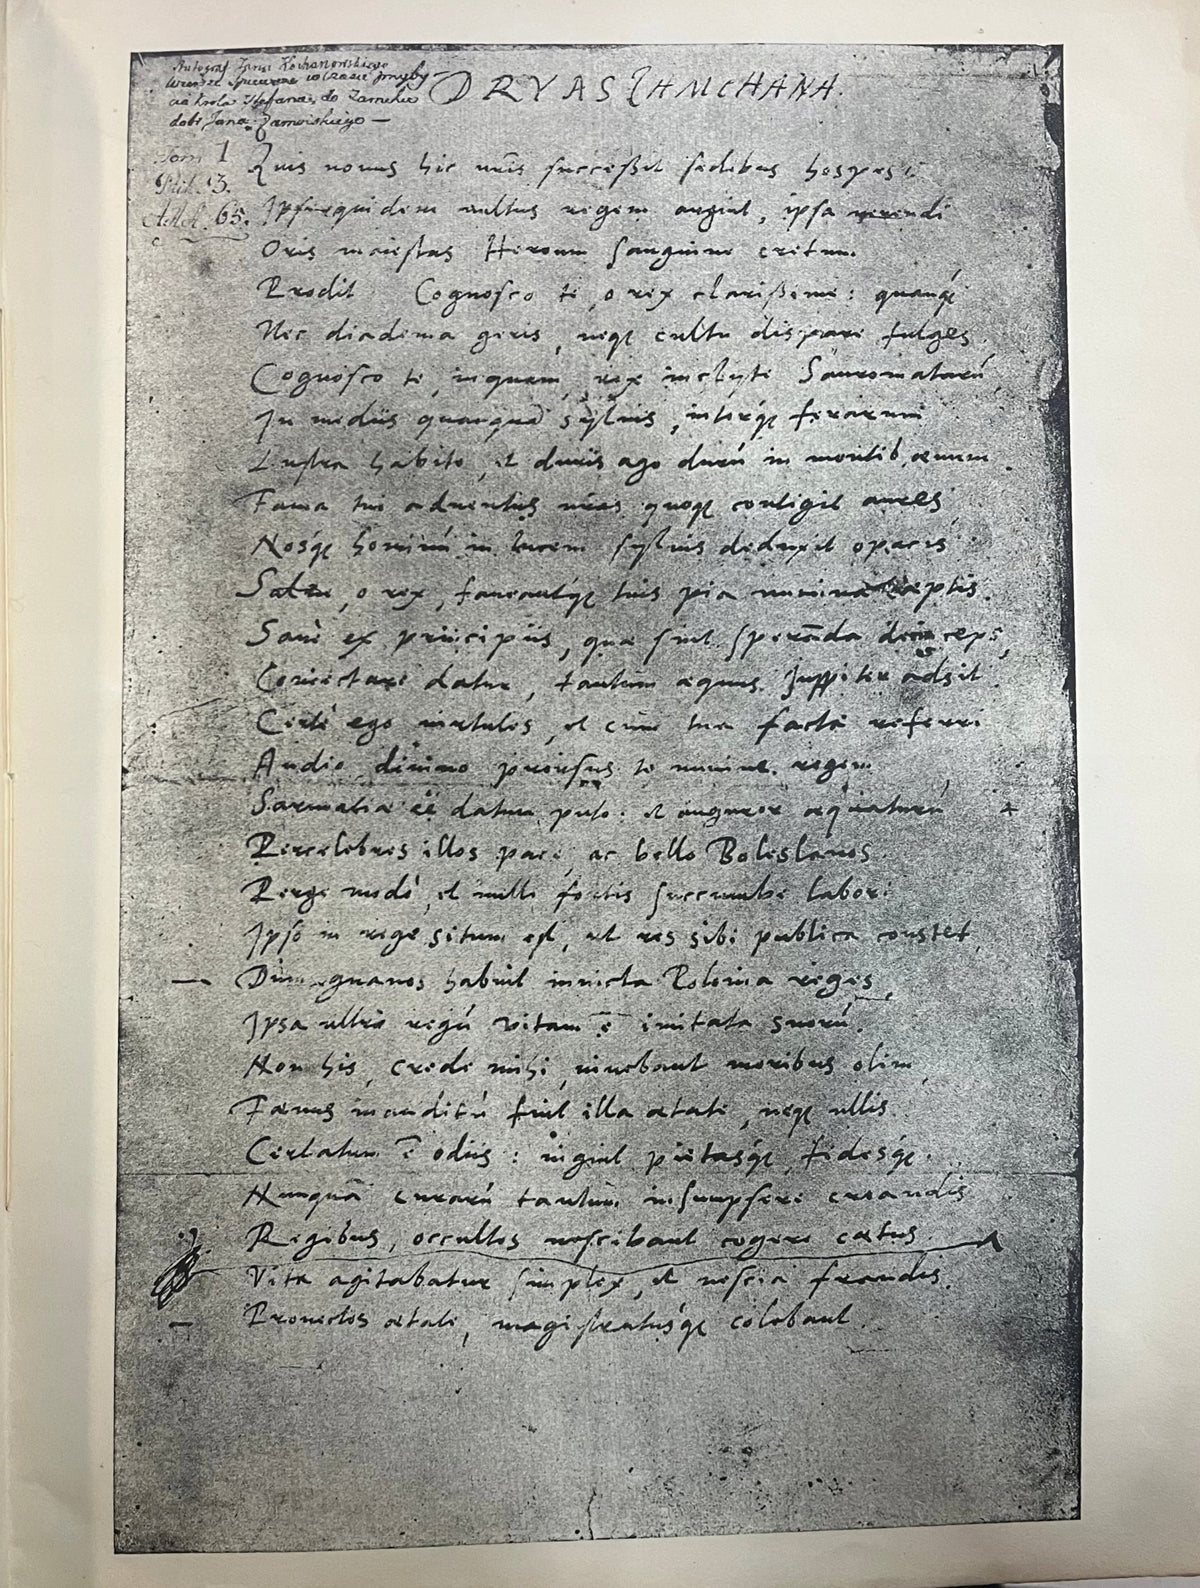 Autograf Jana Kochanowskiego
wiersze śpiewane w czasie przyby-
cia króla Stefana do Zamchu
dobr Jana Zamoiskiego —
DRYAS ZAMCHANA.
Tom 1
65.
Quis nouus hic nr̃is successit sedibus hospes?
Ipse equidem uultus regem arguit, ipsa uerendi
Oris maiestas Heroum sanguine cretum
Prodit. Cognosco te, o rex clarissime: quanq́
Nec diadema geris, neq́ cultu dispare fulges,
Cognosco te, inquam, rex inclyte Sauromatarū,
In mediis quanquā syluis, interq́ ferarum
Lustra habito, et duris ago durū in montib. aeuum.
Fama tui aduentus nr̃as quoq́ contigit aures,
Nosq́ hominū in lucem syluis deduxit opacis.
Salue, o rex, faueantq́ tuis pia numina caeptis.
Sane ex principiis, quae sint sperāda deinceps,
Coniectare datur, tantum aequus Juppiter adsit.
Certe ego uirtutes, et cum tua facta referri
Audio, diuino prorsus te numine regem
Sarmatiae ēē datum puto: et auguror aequaturū
Percelebres illos pace, ac bello Boleslauos.
Perge modò, et nulli fortis succumbe labori
Ipso in rege situm est, ut res sibi publica constet,
Dum gnauos habuit inuicta Polonia reges,
Ipsa ultro regū vitam ē imitata suorū.
Non his, crede mihi, uiuebant moribus olim,
Faenus inauditū fuit illa aetate, neq́ ullis
Certatum ē odiis: uiguit pietasq́, fidesq́.
Nunquā curarū tantum insumpsere creandis
Regibus, occultos nescibant cogere caetus.
Vita agitabatur simplex, et nescia fraudis,
Prouectos aetate, magistratusq́ colebant.